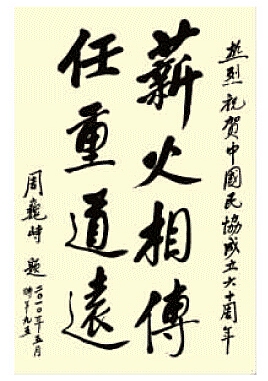 热烈祝賀中國民協成立六十周年
薪火相傳
任重道遠
周巍峙 題
二〇一〇年五月
時年九五